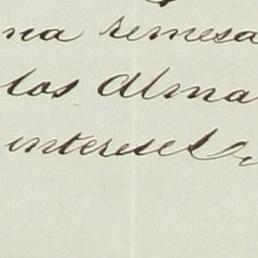 na remesa
los Alma
intereses